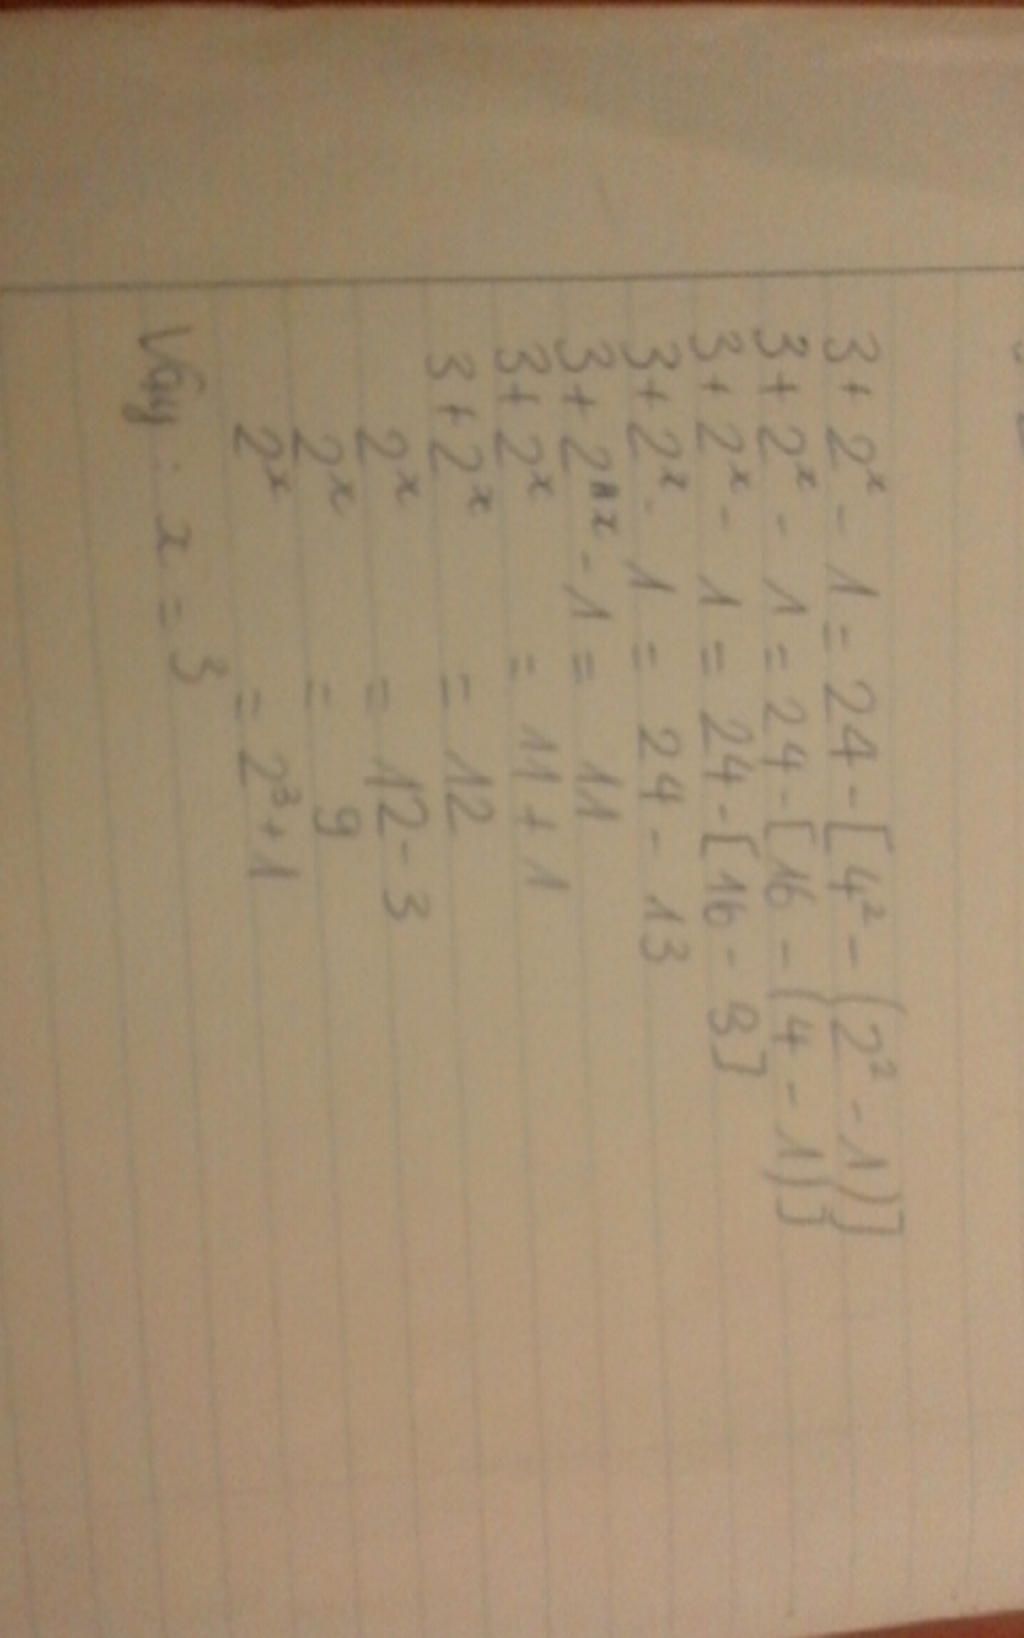 3 + 2ˣ - 1 = 24 - [4² - (2² - 1)]
3 + 2ˣ - 1 = 24 - [16 - (4 - 1)]
3 + 2ˣ - 1 = 24 - [16 - 3]
3 + 2ˣ - 1 = 24 - 13
3 + 2ˣ - 1 = 11
3 + 2ˣ = 11 + 1
3 + 2ˣ = 12
2ˣ = 12 - 3
2ˣ = 9
2ˣ = 2³ + 1
Vậy : x = 3